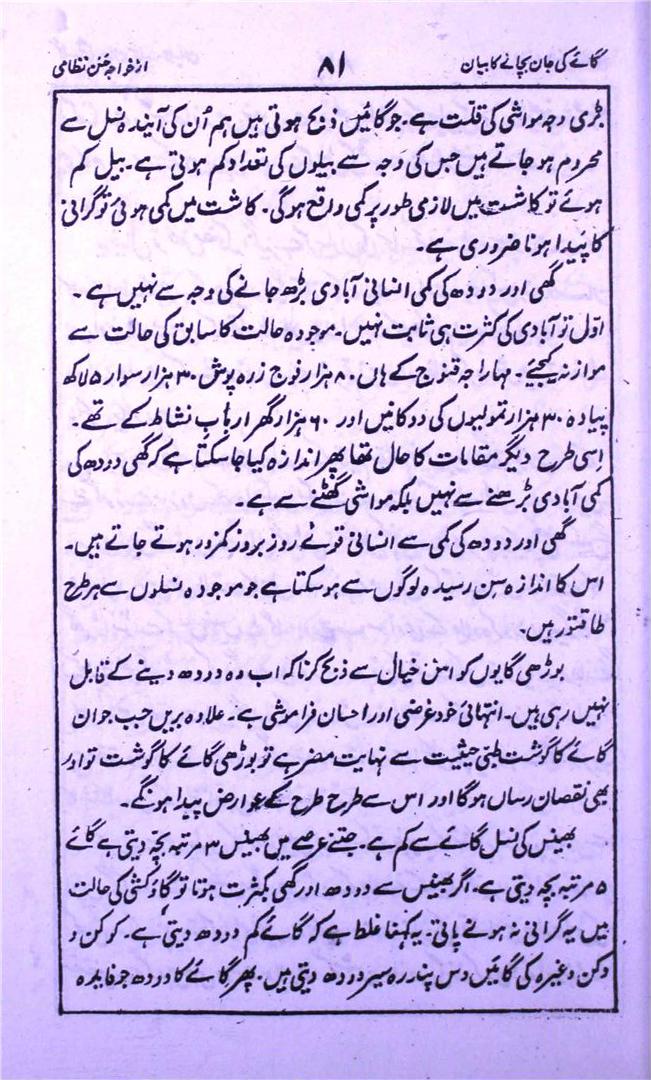 گائے کی جان بچانے کا بیان
۸۱
از خواجہ حسن نظامی
بڑی وجہ مواشی کی قلت ہے۔ جو گائیں ذبح ہوتی ہیں ہم اُن کی آیندہ نسل سے
محروم ہو جاتے ہیں جس کی وجہ سے بیلوں کی تعداد کم ہوتی ہے۔ بیل کم
ہوئے تو کاشت میں لازمی طور پر کمی واقع ہوگی۔ کاشت میں کمی ہوئی تو گرانی
کا پیدا ہونا ضروری ہے۔
گھی اور دودھ کی کمی انسانی آبادی بڑھ جانے کی وجہ سے نہیں ہے۔
اوّل تو آبادی کی کثرت ہی ثابت نہیں۔ موجودہ حالت کا سابق کی حالت سے
موازنہ کیجئے۔ مہاراجہ قنوج کے ہاں ۸۰ ہزار فوج زرہ پوش ۳۰ ہزار سوار ۵ لاکھ
پیادہ ۳۰ ہزار تمولیوں کی دوکانیں اور ۶۰ ہزار گھر اربابِ نشاط کے تھے۔
اِسی طرح دیگر مقامات کا حال تھا پھر اندازہ کیا جا سکتا ہے کہ گھی دودھ کی
کمی آبادی بڑھنے سے نہیں بلکہ مواشی گھٹنے سے ہے۔
گھی اور دودھ کی کمی سے انسانی قوےٰ روز بروز کمزور ہوتے جاتے ہیں۔
اس کا اندازہ سن رسیدہ لوگوں سے ہو سکتا ہے جو موجودہ نسلوں سے ہر طرح
طاقتور ہیں۔
بوڑھی گایوں کو اس خیال سے ذبح کرنا کہ اب وہ دودھ دینے کے قابل
نہیں رہی ہیں۔ انتہائی خود غرضی اور احسان فراموشی ہے۔ علاوہ بریں جب جوان
گائے کا گوشت طبّی حیثیت سے نہایت مضر ہے تو بوڑھی گائے کا گوشت تو اور
بھی نقصان رساں ہوگا اور اس سے طرح طرح کے عوارض پیدا ہونگے۔
بھینس کی نسل گائے سے کم ہے۔ جتنے عرصے میں بھینس ۳ مرتبہ بچّہ دیتی ہے گائے
۵ مرتبہ بچّہ دیتی ہے۔ اگر بھینس سے دودھ اور گھی بکثرت ہوتا تو گاؤکشی کی حالت
میں یہ گرانی نہ ہونے پاتی۔ یہ کہنا غلط ہے کہ گائے کم دودھ دیتی ہے۔ کوکن و
دکن وغیرہ کی گائیں دس پندرہ سیر دودھ دیتی ہیں۔ پھر گائے کا دودھ جو فایدہ